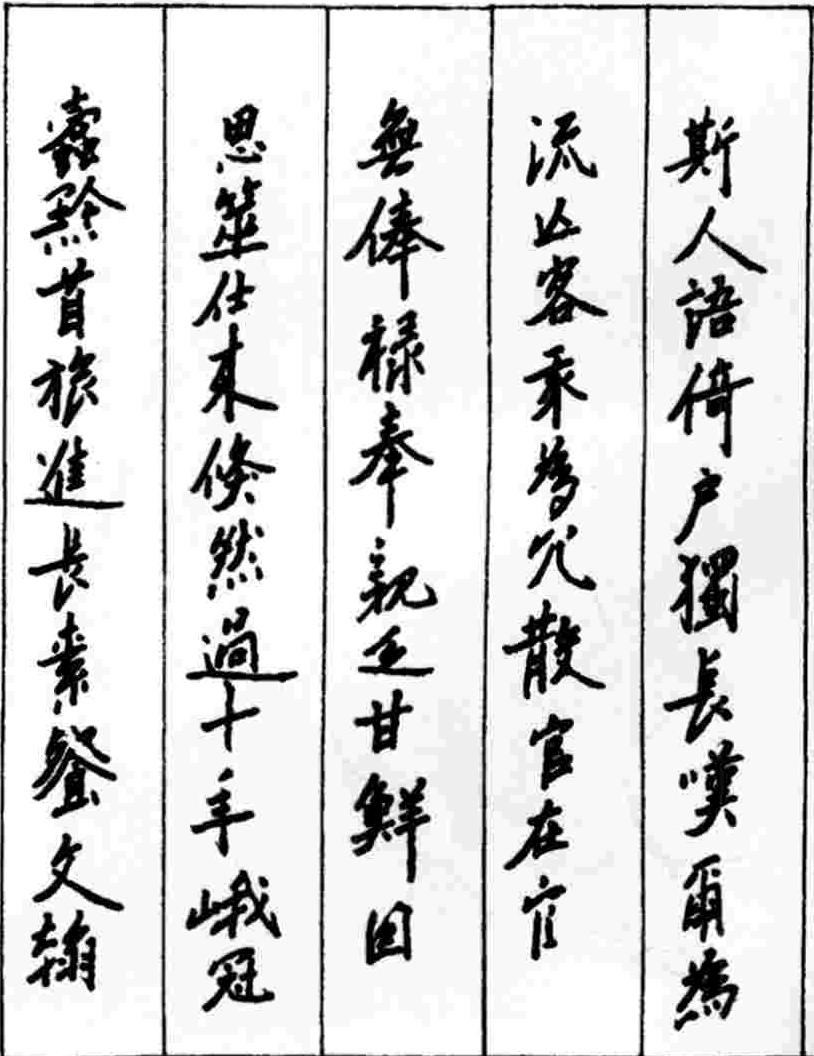 斯人語倚户獨長嘆爾為
流亡客乘為冗散官在官
無俸禄奉親乏甘鮮因
思筮仕來倏然過十年峨冠
蠹黔首旅進長素餐文翰